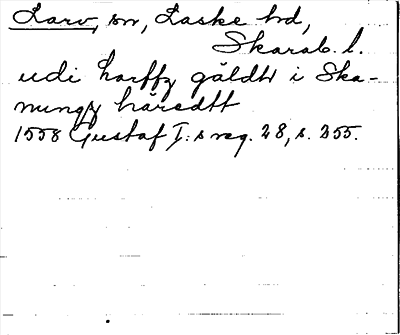 Larv, sn, Laske hd,
Skarab. l.
udi harffz gäldh i Ska-
nungz häredtt
1558 Gustaf I:s reg. 28, s. 355.